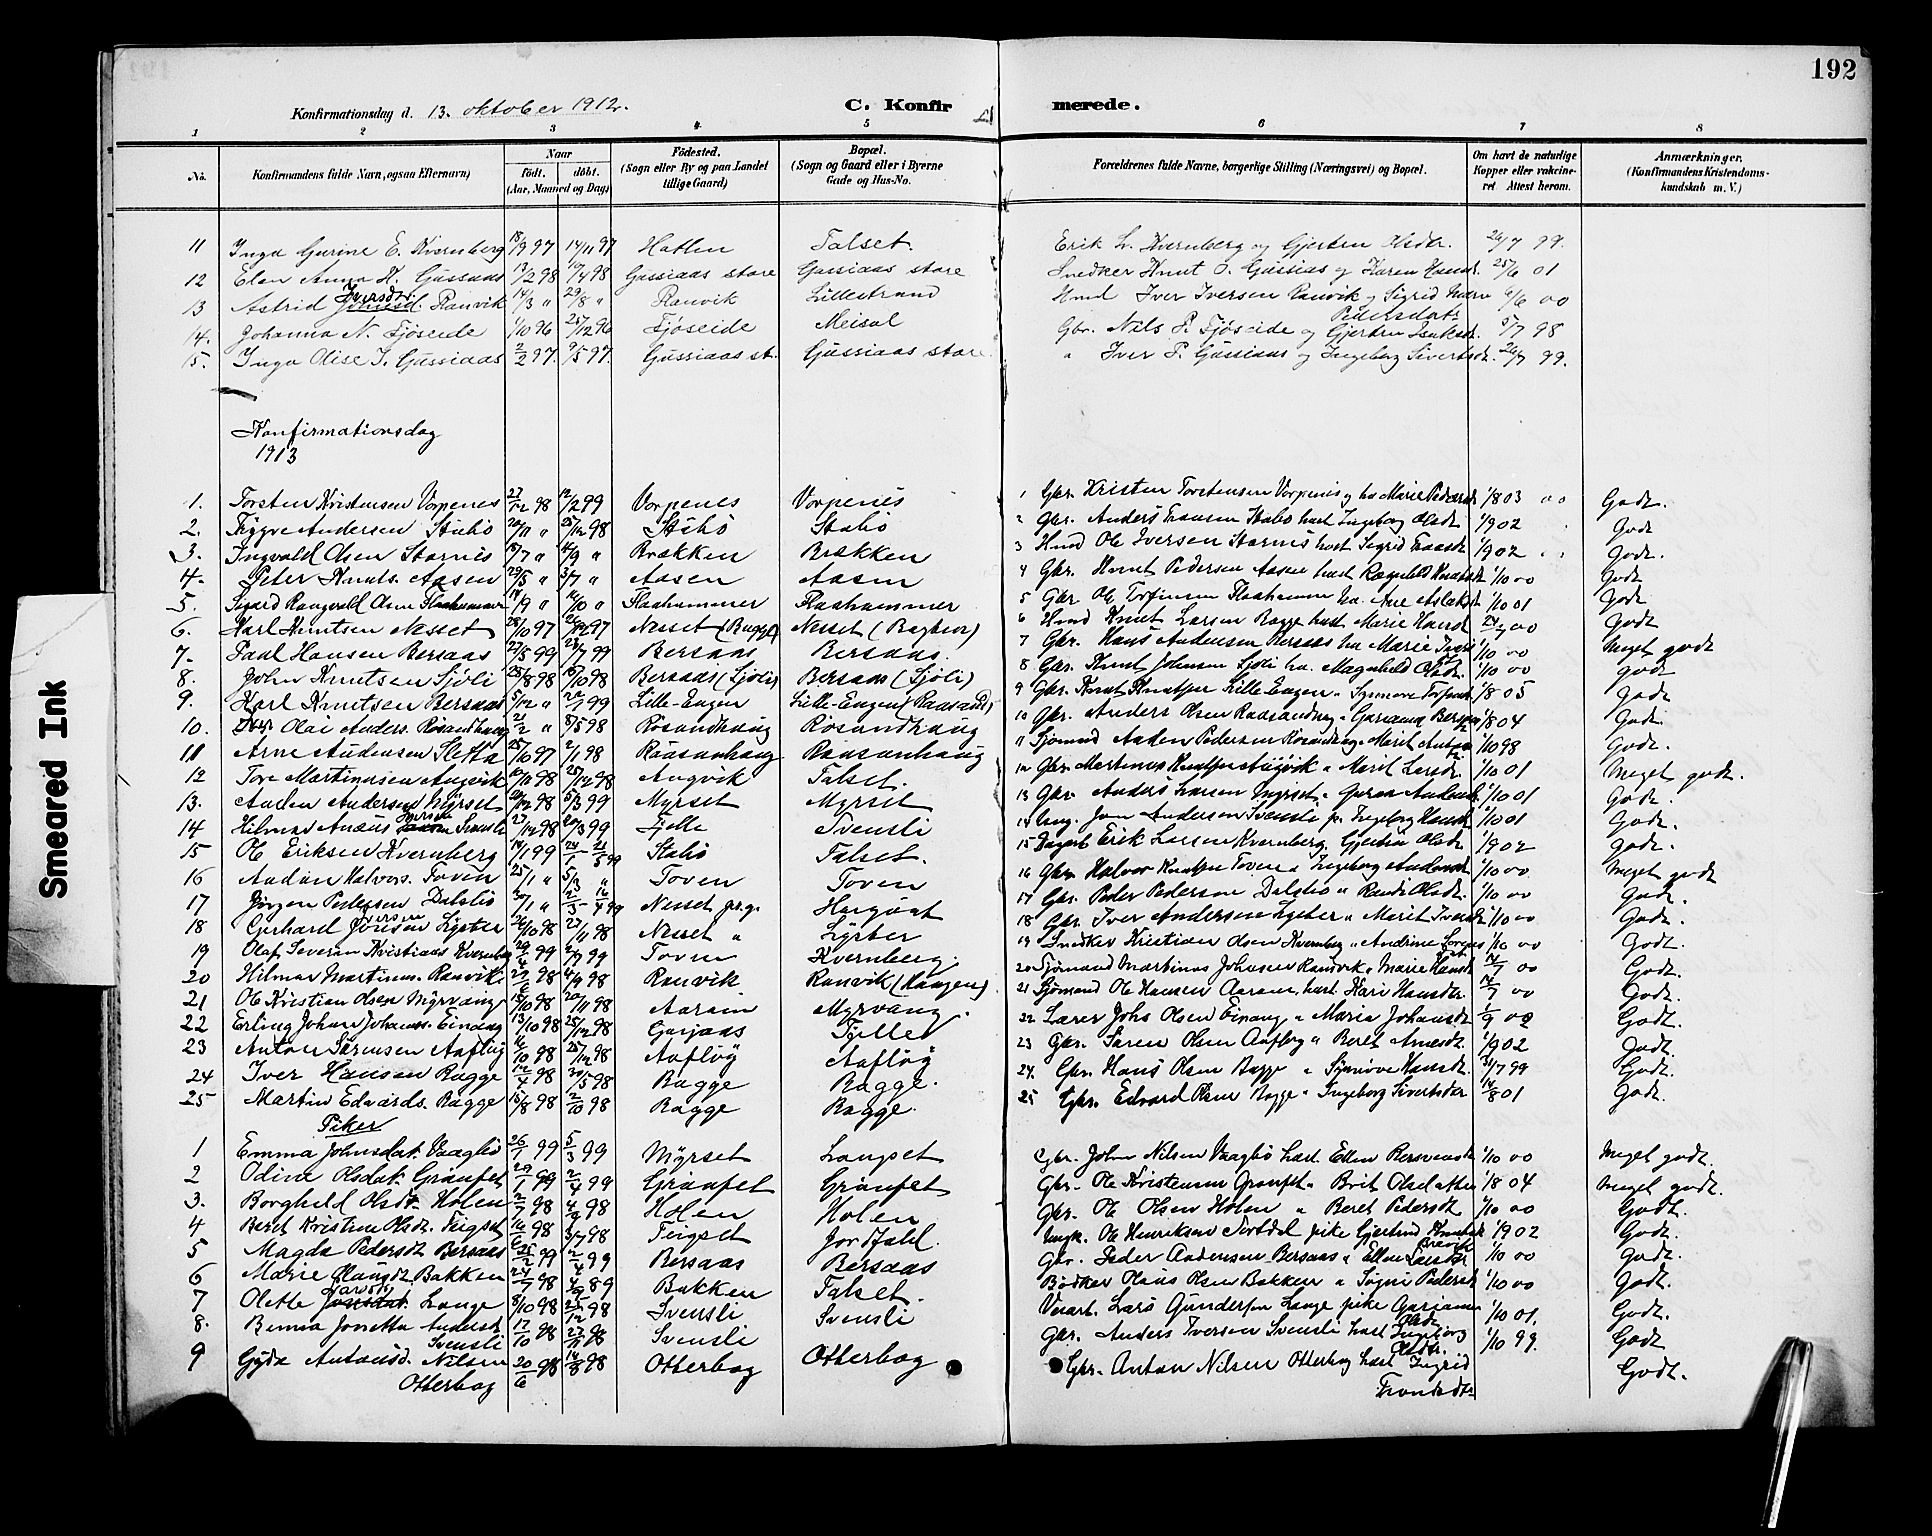 192
Konfirmationsdag d. 13. oktober 1912.
C. Konfirmerede.
1 2 3 4 5 6 7 8
No. Konfirmandens fulde Navn, ogsaa Efternavn) Naar født. døbt. (Aar, Maaned og Dag) Fødested. (Sogn eller By og paa Landet tillige Gaard) Bopæl. (Sogn og Gaard eller i Byerne Gade og Hus-No. Forældrenes fulde Navne, borgerlige Stilling (Næringsvei) og Bopæl. Om havt de naturlige Kopper eller vakcineret Attest herom. Anmærkninger. (Konfirmandens Kristendomskundskab m. V.)
11 Inga Gurine E. Kvernberg 18/9 97 14/11 97 Hatlen Talset. Erik L. Kvernberg og Gjertru Olsdr. 26/7 99.
12 Elen Anna K. Gussiaas 13/2 98 10/4 98 Gussiaas store Gussiaas store Snedker Knut O. Gussias og Karen Hansd. 25/6 01
13 Astrid Iversdtr. Ranvik 14/3 " 29/8 " Ranvik Lillestrand Hmd Iver Iversen Ranvik og Sigrid Marie Pedersdatr 6/6 00
14. Johanna N. Fjøseide 1/10 96 26/12 96 Fjøseide Meisal Gbr. Nils P. Fjøseide og Gjertru Isaksdr. 5/7 98
15. Inga Olise I. Gussiaas 2/2 97. 9/5 97. Gussiaas st. Gussiaas store " Iver P. Gussiaas og Ingeborg Sivertsdr. 26/7 99.
Konfirmationsdag
1913
1. Torsten Kristensen Vorpenes 27/12 98 12/2 99 Vorpenes Vorpenes 1 Gbr. Kristen Torstensen Vorpenes og hu Marie Pedersdr 1/8 03 Godt.
2. Trygve Andersen Stubø 20/11 " 25/12 98 Stubø Stubø 2 Gbr. Anders Transen Stubø hust Ingeborg Olsdt 1/9 02 Godt
3. Ingvald Olsen Starnes 18/7 " 4/9 " Brækken Brækken 3 Hmd Ole Iversen Starnes hust Sigrid 1/9 02 Godt.
4. Peter Knuts. Aasen 29/5 " 3/7 " Aasen Aasen 4 Gbr. Knut Pedersen Aasen hust Ragnhild Knutsdt 1/10 00 Godt
5. Sivard Rangvald Olsen Flaahammer 14/9 " 16/10 " Flaahammer Flaahammer 5 Gbr Ole Torfinsen Flaahammer hu. Ane Aslaksdt 1/10 01 Godt
6. Karl Knutsen Nesset 28/10 97 97 Nesset (Bugge) Nesset 6 Hmd Knut Larsen Bugge hust Marie Hansd 24/7 00 Godt
7. Paul Hansen Bersaas 22/5 99 23/7 99 Bersaas Bersaas. 7 Gbr. Hans Andersen Bersaas hu Marie 1/10 00 Meget godt
8. John Knutsen Sjøli 23/8 98 98 Bersaas (Sjøli) Bersaas (Sjøli) 8 Gbr. Knut Johnsen Sjøli hu. Magnhild Olsdt. 1/10 00 godt
9. Karl Knutsen Bersaas 5/12 " 22/1 99 Lille-Engen Lille-Engen 9 Gbr. Knut Knutsen Lille Engen " Synnøve 1/8 05 Godt
10. Olai Anders. Rosandhaug 21/2 " 8/5 98 Rosandhaug Rosandhaug 10 Gbr. Anders Olsen " Gurianna 1/8 04 Godt
11 Arne Audensen Sletta 25/10 97 2/1 98 Raasanhaug Raasanhaug 11 Sjømand Auden Pedersen Rosandhaug " Marit 1/10 98 Godt.
12 Tore Martinusen Angvik 10/11 98 25/12 98 Angvik Talset. 12 Gbr. Martinus Knutsen Angvik " Marit Larsdr. 1/10 01 Meget godt.
13. Auden Andersen Myrset 98 5/3 99 Myrset Myrset 13 Gbr Anders Larsen Myrset " 1/10 01 Godt.
14 Hilmar Anæus Svensli 27/12 98 20/3 99 Fjelle Svensli 14 Ung. Jon Andersen Svensli pi. Ingeborg Hansdt 1/10 01 Godt.
15 Ole Eriksen Kvernberg 14/1 99 24/1 - 21/5 99 Stubø Talset. 15 Erik Larsen Kvernberg, Gjertru Olsdt 1/9 02 Godt.
16 Audun Halvors. Toven 25/1 " 5/3 " Toven Toven 16 Gbr. Halvor Knutsen Toven " Ingeborg Audensdt 1/10 00 Meget godt
17 Jørgen Pedersen Dalsbø 30/1 " 5/3 - 16/4 99 Nesset pr.g. 17 Gbr. Peder Pedersen Dalsbø " Randi Olsdt. 1/10 00 Godt.
18 Gerhard Iversen Lyster 26/10 98 27/11 98 Nesset " Lyster 18 Gbr Iver Andersen Lyster " Marit Iversdt 1/10 00 Godt.
19 Olaf Severin Kristians Kvernberg 29/4 99 2/7 99 Toven Kvernberg. 19 Snedker Kristian Olsen Kvernberg " Andrine 1/10 00 Godt.
20 Hilmar Martinus. Ranvik 27/6 98 4/9 98 Ranvik Ranvik (Haugen) 20 Sjømand Martinus Johnsen Ranvik " Marie Hansdt 14/7 00 Godt.
21 Ole Kristian Olsen Myrvang 15/10 98 20/11 98 Aaram Myrvang. 21 Sjømand Ole Hansen Aaram, hust. Kari Hansdr. 12/7 00 Godt.
22 Erling Johan Johanns. Einang 13/10 98 25/12 98 Gusjaas Fjelle 22 Lærer Johs Olsen Einang " Maria Johansdt 1/9 02 Godt.
23 Anton Sørensen Aafløg 16/10 98 25/12 98 Aafløg Aafløg 23 Gbr. Søren Olsen Aafløg " Beret Arnesdt. 1/9 02 Godt.
24 Iver Hansen Bugge 12/4 98 30/5 98 Bugge Bugge. 24. Gbr. Hans Olsen Bugge " Synnøve Hansdt. 31/7 99 Godt.
25 Martin Edvards. Bugge 15/8 98 2/10 98 Bugge Bugge. 25 Gbr. Edvard Olsen Bugge " Ingeborg Sivertsdtr 14/8 01 Godt.
Piker
1 Emma Johnsdat. Vaagbø 26/1 99 5/3 99 Myrset Langset Gbr. John Nilsen Vaagbø hust. Ellen 1/10 00 Meget godt.
2 Odine Olsdat. Granset 29/1 99 2/4 99 Granset Granset Gbr. Ole Kristensen Granset " Brit Olsdatter 1/8 04 Meget godt.
3. Borghild Olsdt. Holen 2/7 98 4/9 98 Holen Holen Gbr. Ole Olsen Holen " Beret Pedersdt 1/10 00 Godt.
4 Beret Kristine Olsdt. Teigset 16/6 98 3/7 98 Teigset Jordfald. Ungk. Ole Henriksen pike Gjertrud 1/9 02 Godt.
5 Magda Pedersdt Bersaas 25/2 99 2/4 99 Bersaas Bersaas Gbr. Peder Audensen Bersaas " Ellen Larsdt 1/10 00 Godt.
6 Marie Olausdt. Bakken 24/7 98 4/9 89 Bakken Talset. Bødker Olaus Olsen Bakken " Signe Pedersdt 1/10 00 Godt.
7 Olette Larsdt. Lange 8/10 98 25/12 98 Svensli Svensli Lars Gundersen Lange pike Gurianna Olsdt 1/10 01. Godt.
8. Benna Jonetta Andersdt Svensli 17/10 98 27/11 98 Svensli Gbr. Anders Iversen Svensli hust Ingeborg Olsdtr. 1/10 99. Godt
9 Gyda Antonsd. Nilsen Otterbog 20/6 98 14/8 98 Otterbog Otterbog Gbr. Anton Nilsen Otterbog hust Ingrid Trondsdtr Godt.
Smeared Ink